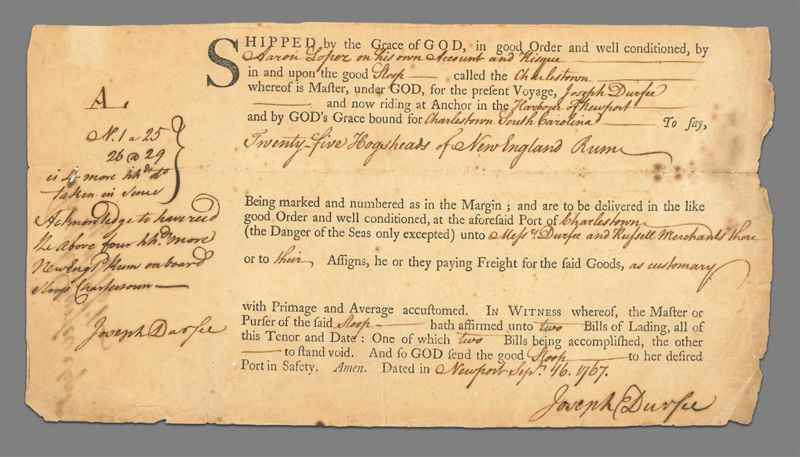 SHIPPED by the Grace of GOD, in good Order and well conditioned, by
Aaron Lopez on his own Account and Risque
in and upon the good Sloop called the Charlestown
whereof is Maſter, under GOD, for the preſent Voyage, Joseph Durfee
and now riding at Anchor in the Harbour of Newport
and by GOD's Grace bound for Charlestown South Carolina To ſay,
Twenty-five Hogsheads of New England Rum
A.
N. 1 a 25
26 @ 29
is 4 more hhds do
taken in since
Acknowledge to have recd
the above four hhds more
New Engd Rum on board
Sloop Charlestown
Joseph Durfee
Being marked and numbered as in the Margin; and are to be delivered in the like
good Order and well conditioned, at the aforeſaid Port of Charlestown
(the Danger of the Seas only excepted) unto Messrs Durfee and Russell Merchants there
or to their Aſſigns, he or they paying Freight for the ſaid Goods, as customary
with Primage and Average accuſtomed. IN WITNESS whereof, the Maſter or
Purſer of the ſaid Sloop hath affirmed unto two Bills of Lading, all of
this Tenor and Date: One of which two Bills being accompliſhed, the other
to ſtand void. And ſo GOD ſend the good Sloop to her deſired
Port in Safety. Amen. Dated in Newport Sepr. 16. 1767.
Joseph Durfee